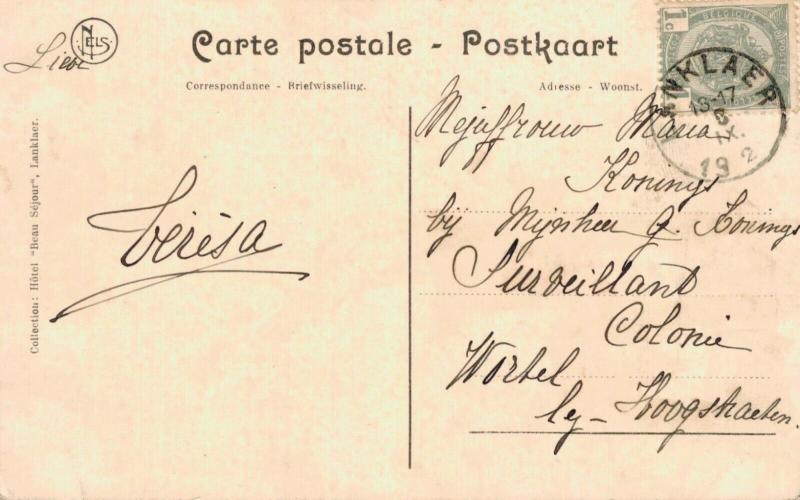 NELS
Liese
Carte postale - Postkaart
Correspondance - Briefwisseling.
Adresse - Woonst.
1c BELGIQUE 1c
LANKLAER
13-17
6
IX.
19 2
Collection: Hôtel "Beau Séjour", Lanklaer.
térèsa
Mejuffrouw Maria
Konings
bij Mijnheer J. Konings
Surveillant
Colonie
Wortel
by- Hoogstraeten.